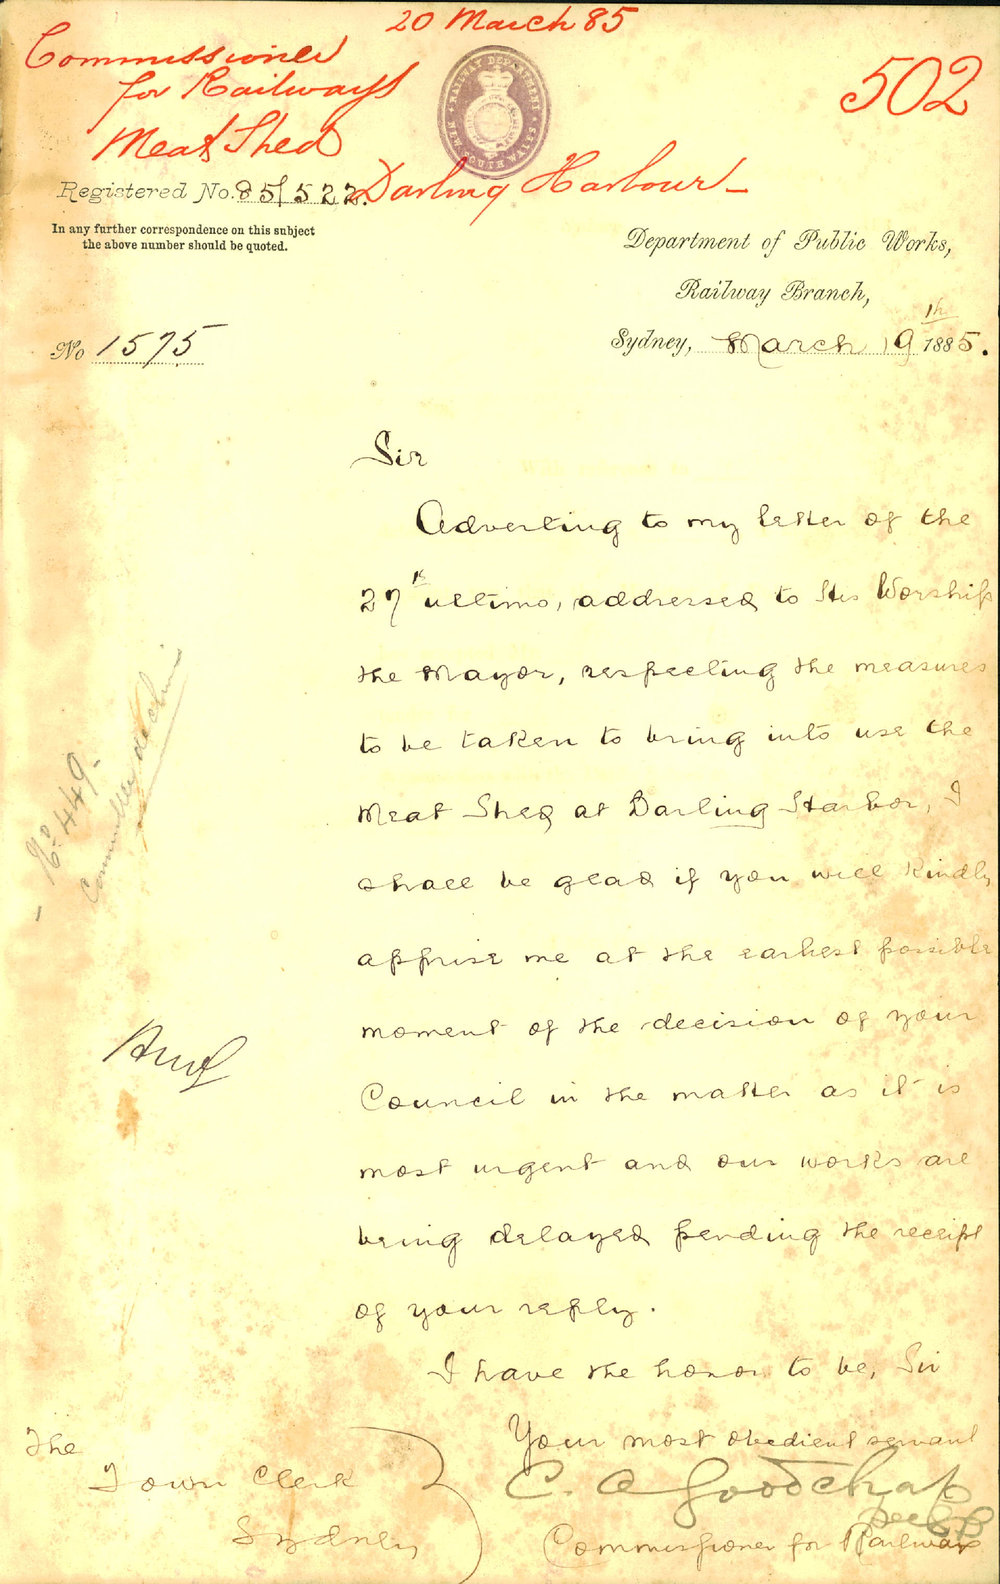 20 March 85
Commissioner
for Railways
502
Meat Shed
Darling Harbour -
RAILWAY DEPARTMENT
NEW SOUTH WALES
Registered No. 85/522.
In any further correspondence on this subject
the above number should be quoted.
Department of Public Works,
Railway Branch,
Sydney, March 19th 1885.
No 1575
Sir
Adverting to my letter of the
27th ultimo, addressed to His Worship
the Mayor, respecting the measures
to be taken to bring into use the
Meat Shed at Darling Harbor, I
shall be glad if you will kindly
apprise me at the earliest possible
moment of the decision of your
Council in the matter as it is
most urgent and our works are
being delayed pending the receipt
of your reply.
I have the honor to be, Sir
Your most obedient servant
C. A. Goodchap
Commissioner for Railways
The
Town Clerk
Sydney
- No 449 -